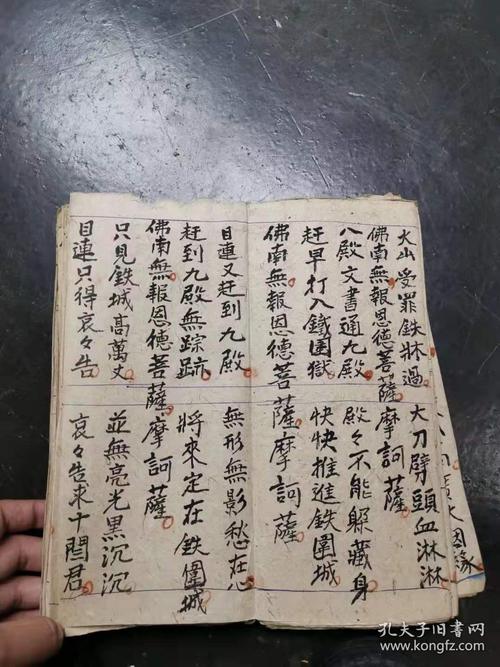 火山受罪鉄牀過 大刀劈頭血淋淋
佛南無報恩德菩薩摩訶薩
八殿文書通九殿 殿々不能躲藏身
赶早打入鐵围獄 快快推進鉄圍城
佛南無報恩德菩薩摩訶薩
目連又赶到九殿 無形無影愁在心
赶到九殿無踪跡 將來定在鉄圍城
佛南無報恩德菩薩摩訶薩
只見鉄城高萬丈 並無亮光黑沉沉
目連只得哀々告 哀々告求十閻君
因緣
孔夫子旧书网
www.kongfz.com